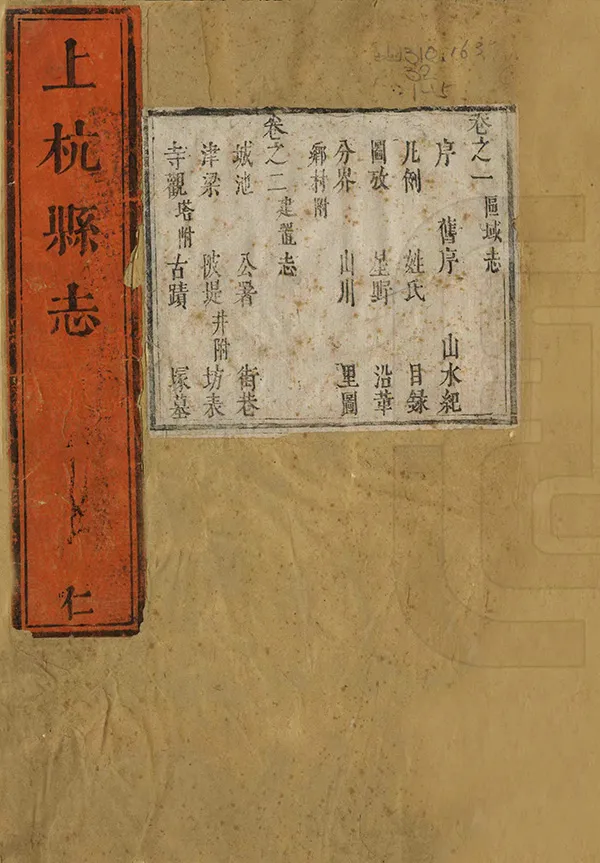 上杭縣志
仁
卷之一 區域志
序 舊序 山水紀
凡例 姓氏 目錄
圖攷 星野 沿革
分界 山川 里圖
鄉村附
卷之二 建置志
城池 公署 街巷
津梁 陂堤井附 坊表
寺觀塔附 古蹟 塚墓
310.169
32
1-5